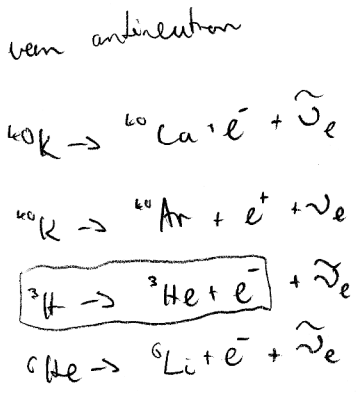 antineutron
⁴⁰K → ⁴⁰Ca + e⁻ + ν̃ₑ
⁴⁰K → ⁴⁰Ar + e⁺ + νₑ
³H → ³He + e⁻ + ν̃ₑ
⁶He → ⁶Li + e⁻ + ν̃ₑ